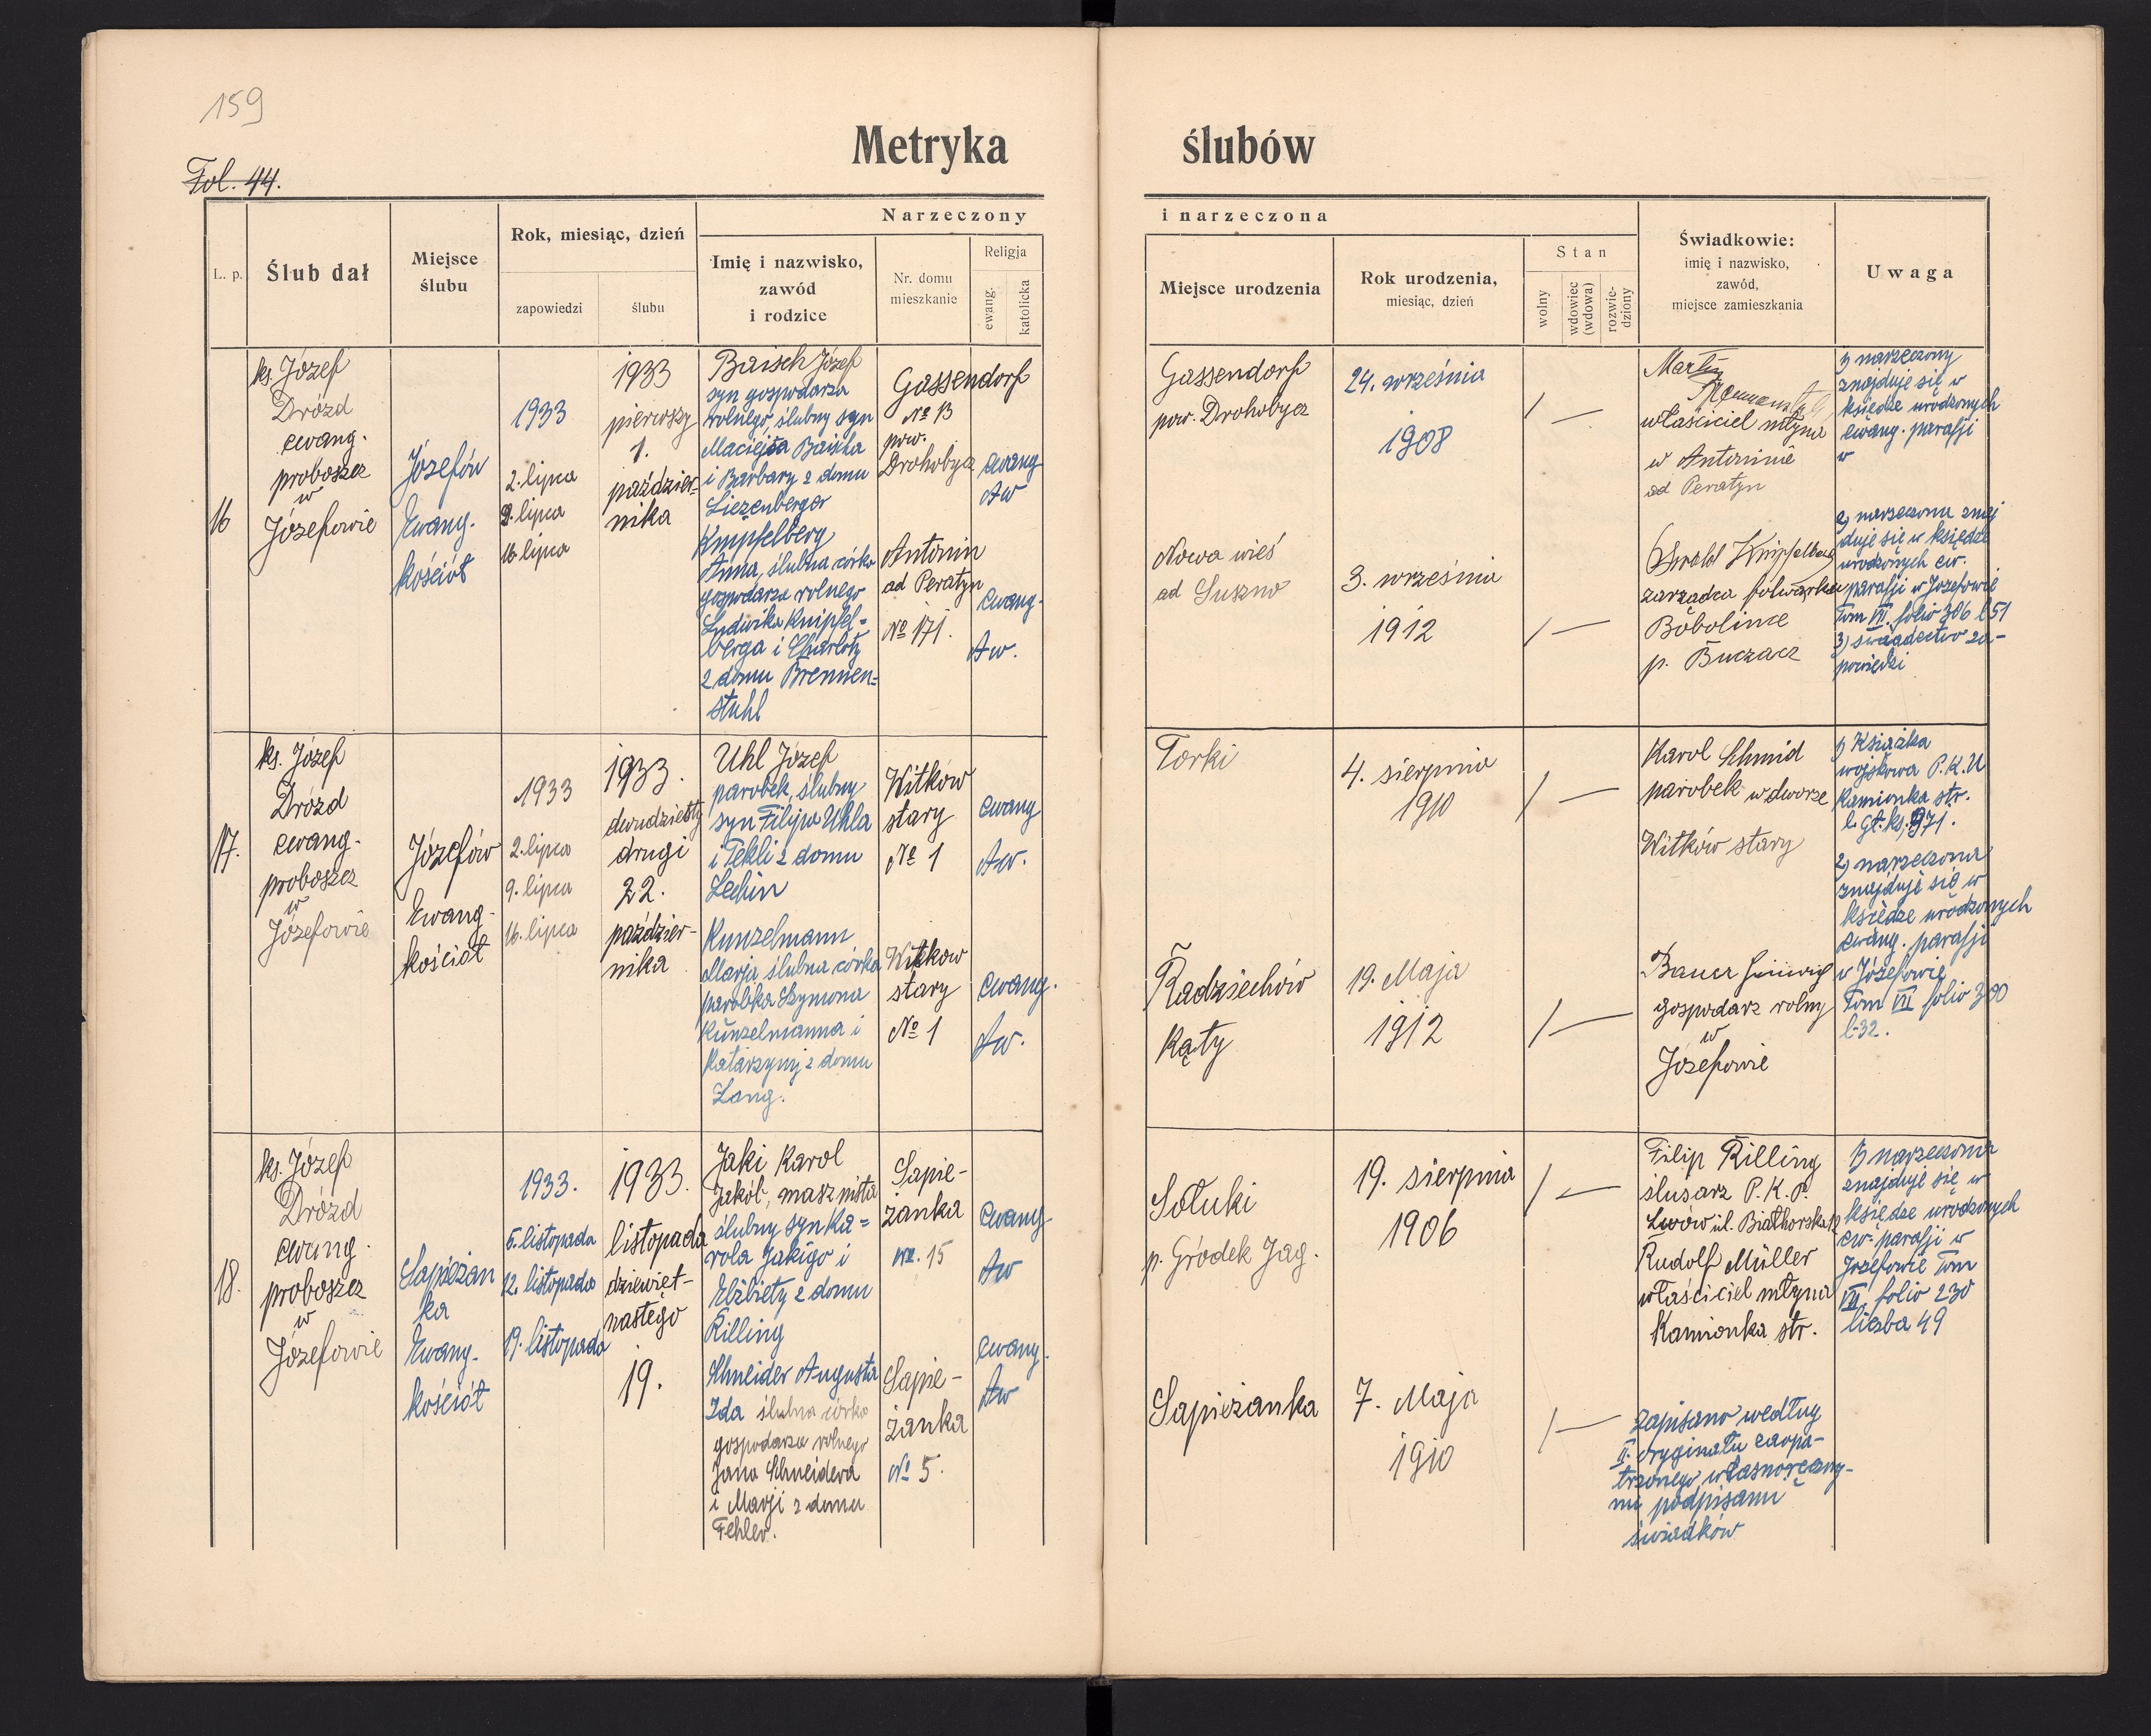 159
Metryka ślubów
Fol. 44.
L. p.
Ślub dał
Miejsce
ślubu
Rok, miesiąc, dzień
zapowiedzi
ślubu
Narzeczony
Imię i nazwisko,
zawód
i rodzice
Nr. domu
mieszkanie
Religja
ewang.
katolicka
i narzeczona
Miejsce urodzenia
Rok urodzenia,
miesiąc, dzień
Stan
wolny
wdowiec
(wdowa)
rozwie-
dziony
Świadkowie:
imię i nazwisko,
zawód,
miejsce zamieszkania
Uwaga
16
ks. Józef
Drózd
ewang.
proboszcz
w
Józefowie
Józefów
Ewang.
kościół
1933
2. lipca
9. lipca
16 lipca
1933
pierwszy
1.
paździer-
nika
Baisch Józef
syn gospodarza
rolnego, ślubny syn
Macieja Baischa
i Barbary z domu
Liezenberger
Knipfelberg
Anna, ślubna córka
gospodarza rolnego
Ludwika Knipfel=
berga i Charloty
z domu Brennen=
stuhl
Gassendorf
No 13
pow.
Drohobycz
Antonin
ad Peratyn
No 171.
ewang
Aw
ewang.
Aw.
Gassendorf
pow. Drohobycz
Nowa wieś
ad Suszno
24. września
1908
3. września
1912
/ —
/ —
Martin
właściciel młyna
w Antoninie
ad Peratyn
Oswald Knipfelberg
zarządca folwarku
Bobolince
p. Buczacz
1) narzeczony
znajduje się w
księdze urodzonych
ewang. parafji
w
2) narzeczona znaj
duje się w księdze
urodzonych ew.
parafji w Józefowie
Tom VII. folio 306 l 51
3) świadectwo za-
powiedzi
17.
ks. Józef
Drózd
ewang.
proboszcz
w
Józefowie
Józefów
Ewang.
kościół
1933
2. lipca
9. lipca
16. lipca
1933.
dwudziesty
drugi
22.
paździer-
nika
Uhl Józef
parobek, ślubny
syn Filipa Uhla
i Tekli z domu
Lechin
Kunzelmann
Marja ślubna córka
parobka Szymona
Kunzelmanna i
Katarzyny z domu
Lang.
Witków
stary
No 1
Witkow
stary
No 1
ewang
Aw.
ewang.
Aw.
Torki
Radziechów
Kąty
4. sierpnia
1910
19. Maja
1912
/ —
/ —
Karol Schmid
parobek w dworze
Witków stary
Bauer
gospodarz rolny
w
Józefowie
1) Książka
wojskowa P.K.U
Kamionka str.
l. gł. ks. 971.
2) narzeczona
znajduje się w
księdze urodzonych
ewang. parafji
w Józefowie
Tom VII folio 300
l-32.
18.
ks. Józef
Drózd
ewang.
proboszcz
w
Józefowie
Sapieżan
ka
Ewang.
kościół
1933.
5. listopada
12. listopada
19. listopada
1933.
listopada
dziewięt-
nastego
19.
Jaki Karol
Jakób, maszynista
ślubny syn Ka=
rola Jakigo i
Elżbiety z domu
Rilling
Schneider Augusta
Ida ślubna córka
gospodarza rolnego
Jana Schneidera
i Marji z domu
Fehler.
Sapie-
żanka
No. 15
Sapie-
żanka
No 5.
ewang
Aw
ewang.
Aw
Sołuki
p. Gródek Jag.
Sapieżanka
19. sierpnia
1906
7. Maja
1910
/ —
/ —
Filip Rilling
ślusarz P.K.P.
Lwów ul. Białhorska 12
Rudolf Müller
właściciel młyna
Kamionka str.
Zapisano według
II. oryginału zaopa-
trzonego własnoręczny-
mi podpisami
świadków
1) narzeczona
znajduje się w
księdze urodzonych
ew. parafji w
Józefowie Tom
VII. folio 230
liczba 49